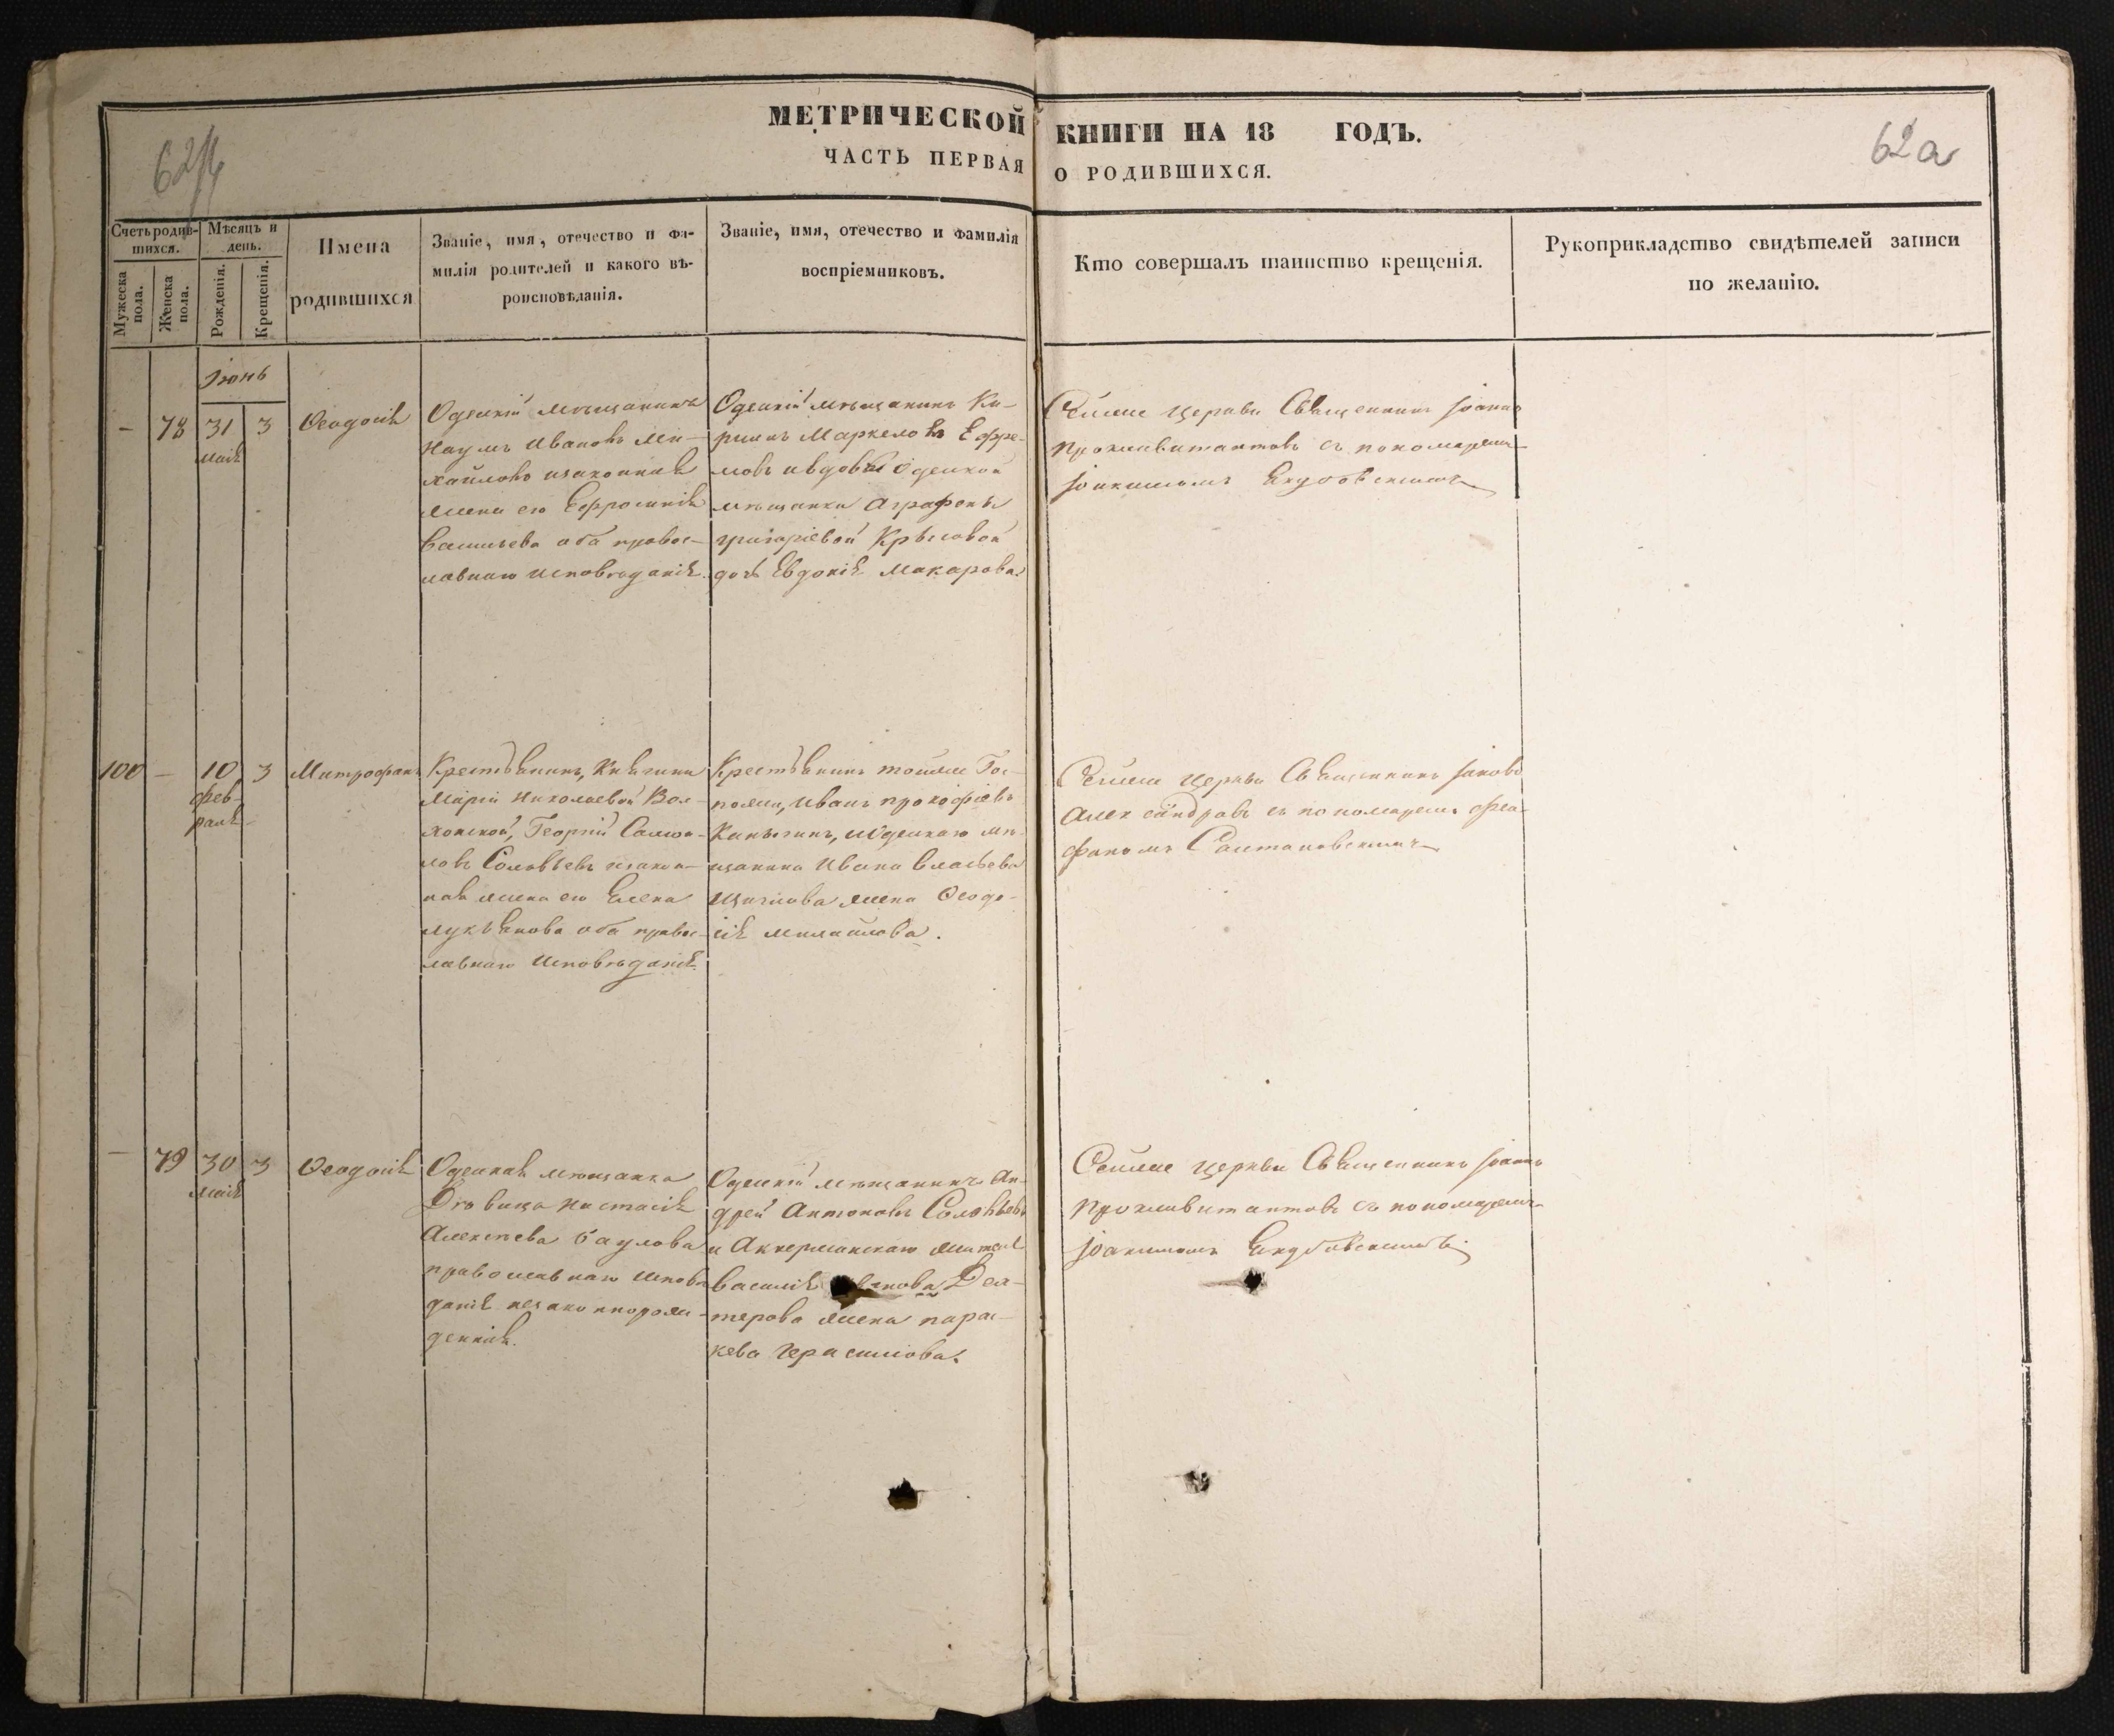 МЕТРИЧЕСКОЙ КНИГИ НА 18 ГОДЪ.
ЧАСТЬ ПЕРВАЯ О РОДИВШИХСЯ.
62а
Счетъ родив-
шихся.
Мужеска пола.
Женска пола.
Мѣсяцъ и
день.
Рожденія.
Крещенія.
Имена
родившихся
Званіе, имя, отечество и фа-
милія родителей и какого вѣ-
роисповѣданія.
Званіе, имя, отечество и фамилія
воспріемниковъ.
Кто совершалъ таинство крещенія.
Рукоприкладство свидѣтелей записи
по желанію.
Іюнь
— 78 31 3
маія
Ѳеодосія
Одескій мѣщанинъ
Наумъ Ивановъ Ми-
хайловъ изаконная
жена его Ефросинія
Васильева оба правос-
лавнаго исповѣданія.
Одескій мѣщанинъ Ки-
рилъ Маркеловъ Ефре-
мовъ ивдовы Одеской
мѣщанки Аграфены
григоріевой Крысовой
дочь Евдокія Макарова.
Сейже церкви Священникъ Іоаннъ
съ пономаремъ
Іоакимомъ
100 — 10 3
фев-
раля
Митрофанъ
Крестьянинъ, Княгини
Маріи Николаевой Вол-
хонской, Георгій Самои-
ловъ Соловьевъ изакон-
ная жена его Елена
лукьянова оба правос-
лавнаго исповѣданія.
Крестьянинъ тойже Гос-
пожи, Иванъ прокофіевъ
иОдескаго мѣ-
щанина Ивана Власьева
жена Ѳеодо-
сія михайлова.
Сейже церкви Священникъ Іаковъ
Александровъ съ пономаремъ Фео-
фаномъ
— 79 30 3
маія
Ѳеодосія
Одеская мѣщанка
Дѣвица Настасія
Алексѣева баулова
православнаго исповѣ
данія незаконнорож-
денная.
Одескій мѣщанинъ Ан-
дрей Антоновъ Соловьевъ
и Аккерманскаго жителя
василія
жена парас-
кева Герасимова.
Сейже церкви Священникъ Іоаннъ
съ пономаремъ
Іоакимомъ